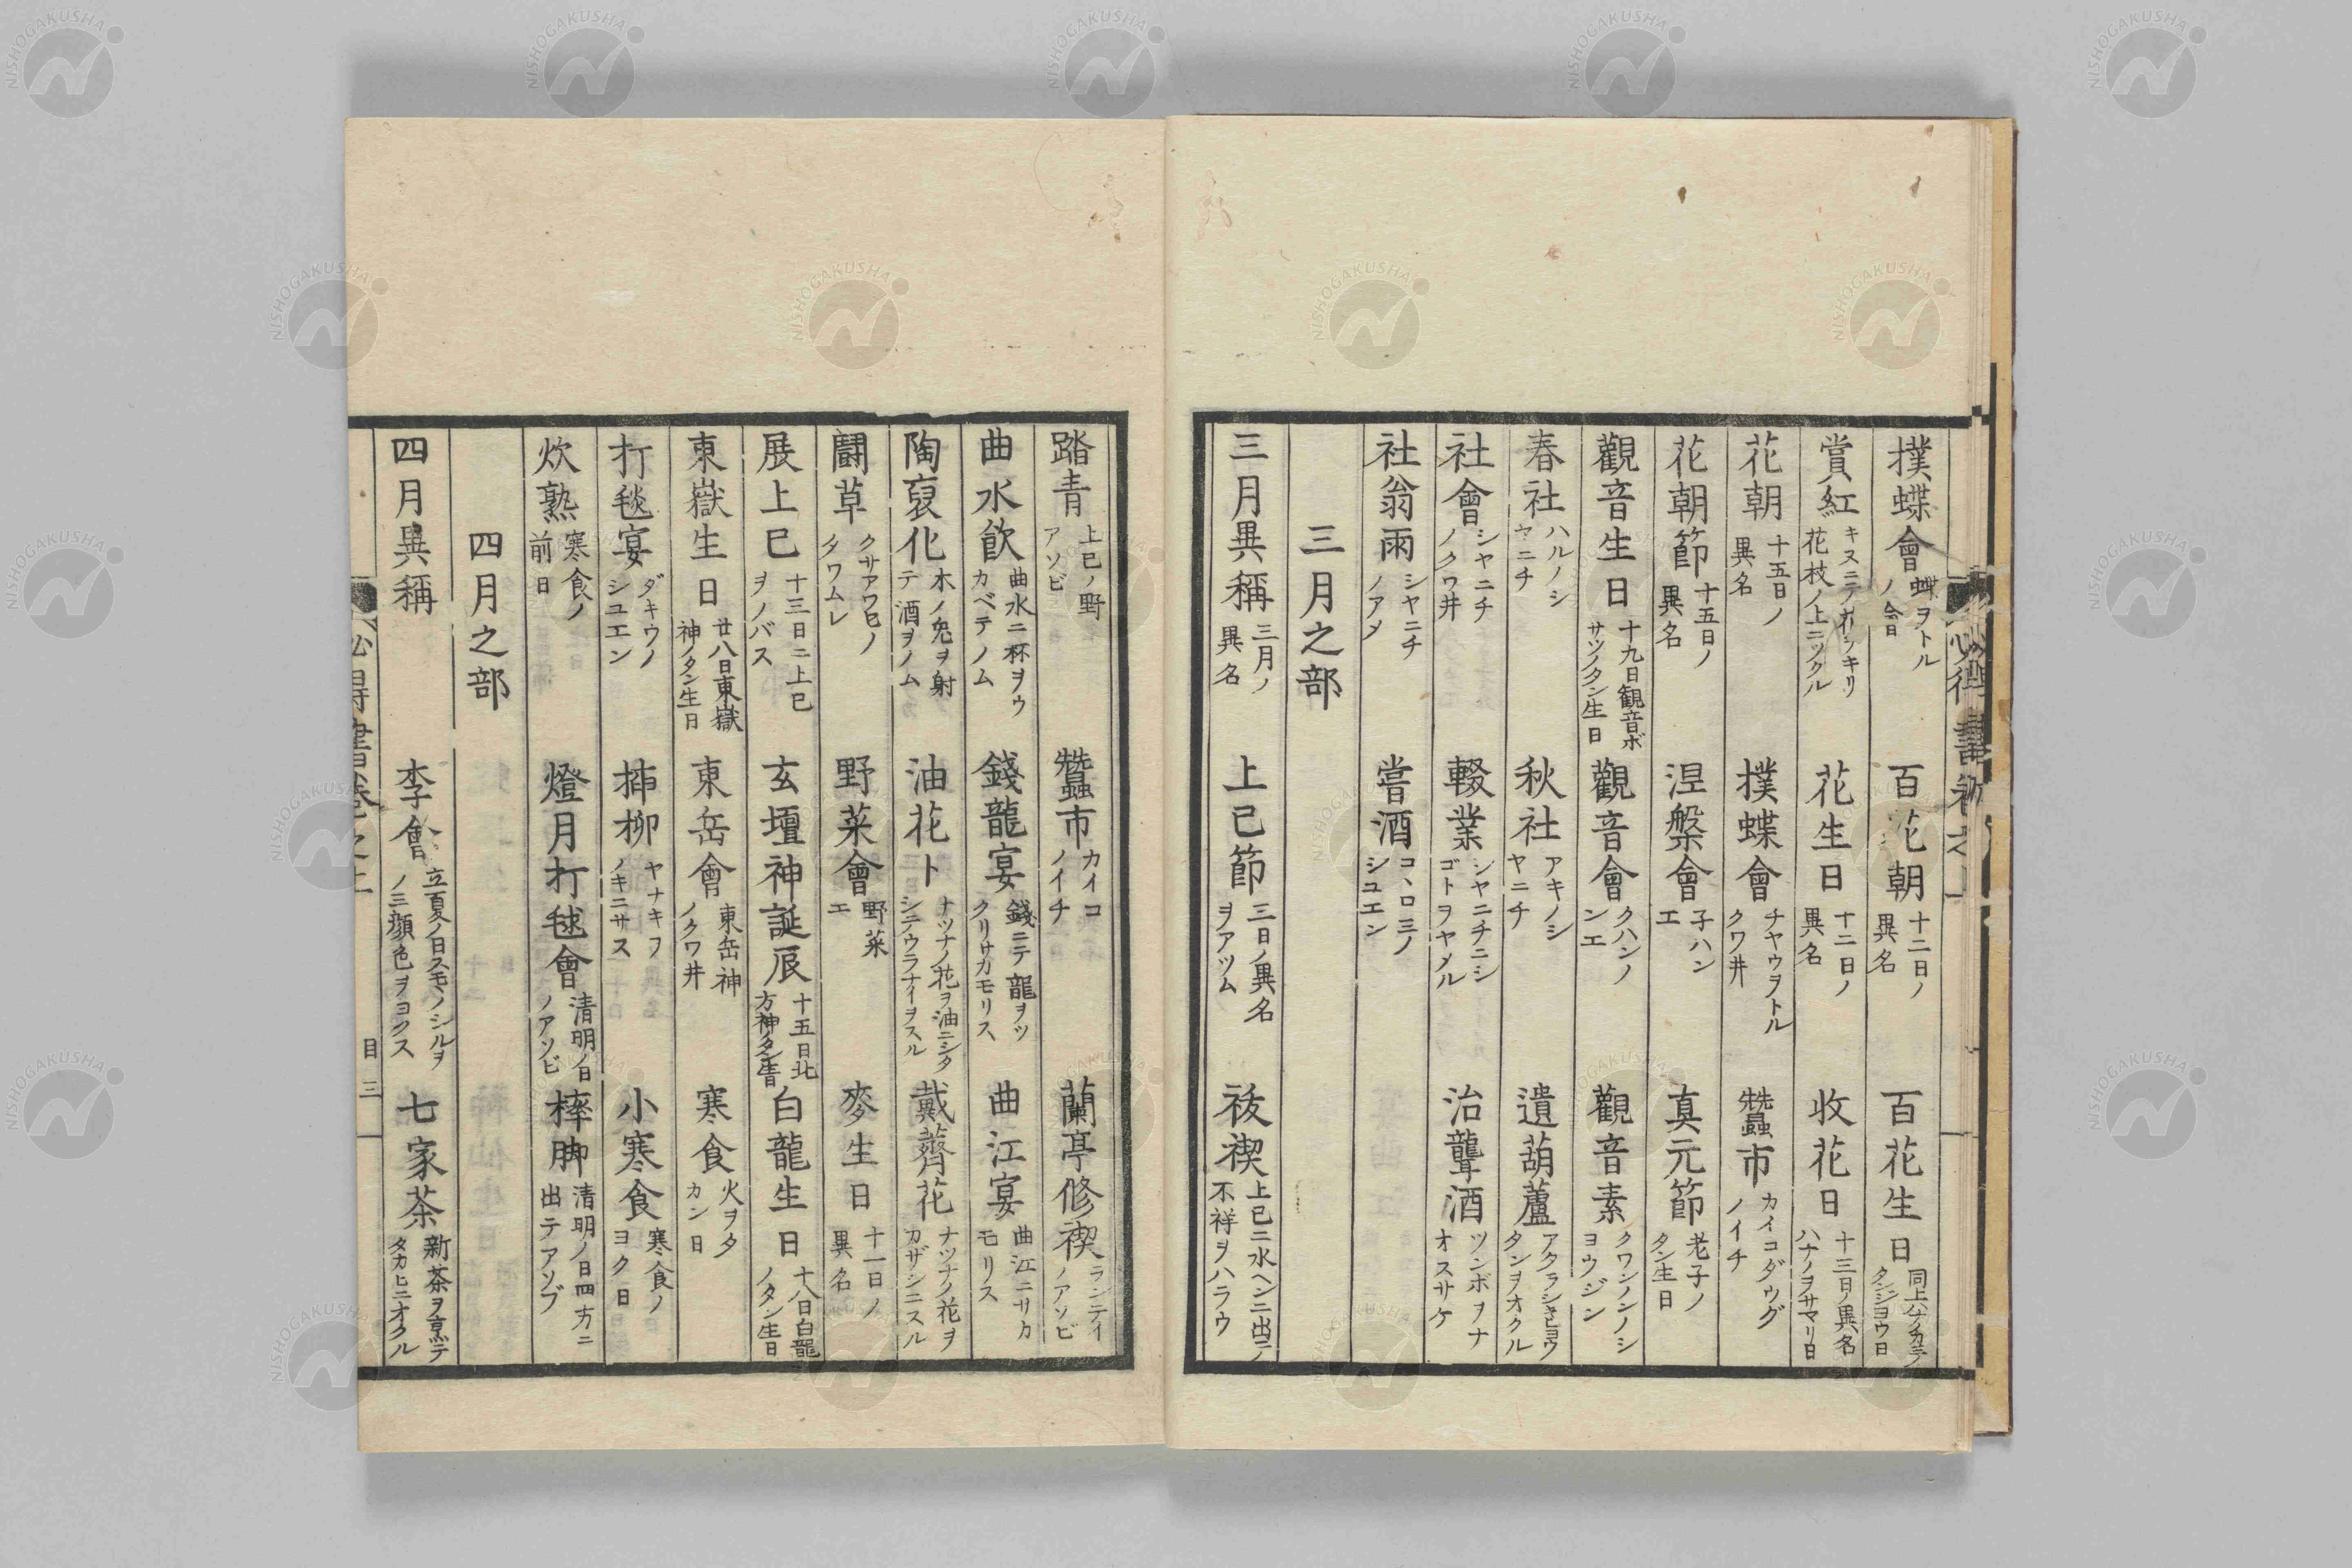 撲蝶會 蝶ヲトルノ会日 百花朝 十二日ノ異名 百花生日 同上ハナノカミノタンジヨウ日
賞紅 キヌニテ花枝ノ上ニツクル 花生日 十二日ノ異名 收花日 十三日ノ異名ハナノヲサマリ日
花朝 十五日ノ異名 撲蝶會 チヤウヲトルクワ井 蠶市 カイコダウグノイチ
花朝節 十五日ノ異名 涅槃會 子ハンエ 真元節 老子ノタン生日
觀音生日 十九日観音ボサツノタン生日 觀音會 クハンノンエ 觀音素 クワンノンノシヨウジン
春社 ハルノシヤニチ 秋社 アキノシヤニチ 遺葫蘆 タンヲオクル
社會 シヤニチノクワ井 輟業 シヤニチニシゴトヲヤメル 治聾酒 ツンボヲナオスサケ
社翁雨 シヤニチノアメ 嘗酒 コヽロミノシユエン
三月之部
三月異稱 三月ノ異名 上巳節 三日ノ異名ヲアツム 祓禊 上巳ニ水ヘンニ出テ不祥ヲハラウ
踏青 上巳ノ野アソビ 蠶市 カイコノイチ 蘭亭修禊 ランテイノアソビ
曲水飲 曲水ニ杯ヲウカベテノム 錢龍宴 錢ニテ龍ヲツクリサカモリス 曲江宴 曲江ニサカモリス
陶裒化 木ノ兔ヲ射テ酒ヲノム 油花卜 ナツナノ花ヲ油ニシタシテウラナイヲスル 戴薺花 ナツナノ花ヲカザシニスル
鬪草 クサアワセノタワムレ 野菜會 野菜エ 麥生日 十一日ノ異名
展上巳 十三日ニ上巳ヲノバス 玄壇神誕辰 十五日北方神ノタン生日 白龍生日 十八日白龍ノタン生日
東嶽生日 廿八日東嶽神ノタン生日 東岳會 東岳神ノクワ井 寒食 火ヲタカン日
打毬宴 ダキウノシユエン 揷柳 ヤナキヲノキニサス 小寒食 寒食ノヨク日
炊熟 寒食ノ前日 燈月打毬會 清明ノ日ノアソビ 榨脚 清明ノ日四方ニ出テアソブ
四月之部
四月異稱 李會 立夏ノ日スモヽノシルヲノミ顔色ヲヨクス 七家茶 新茶ヲ烹テタカヒニオクル
目 三
NISHOGAKUSHA